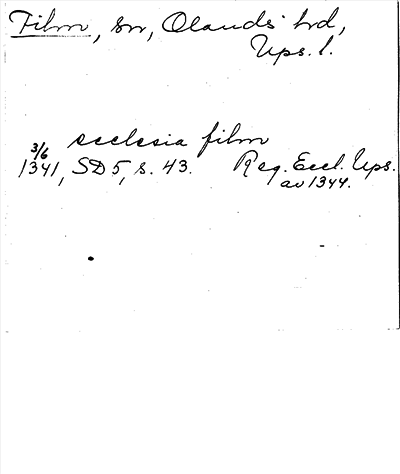 Film, sn, Olands hd,
Ups. l.
ecclesia film
3/6
1341, SD 5, s. 43. Reg. Eccl. Ups.
av 1344.